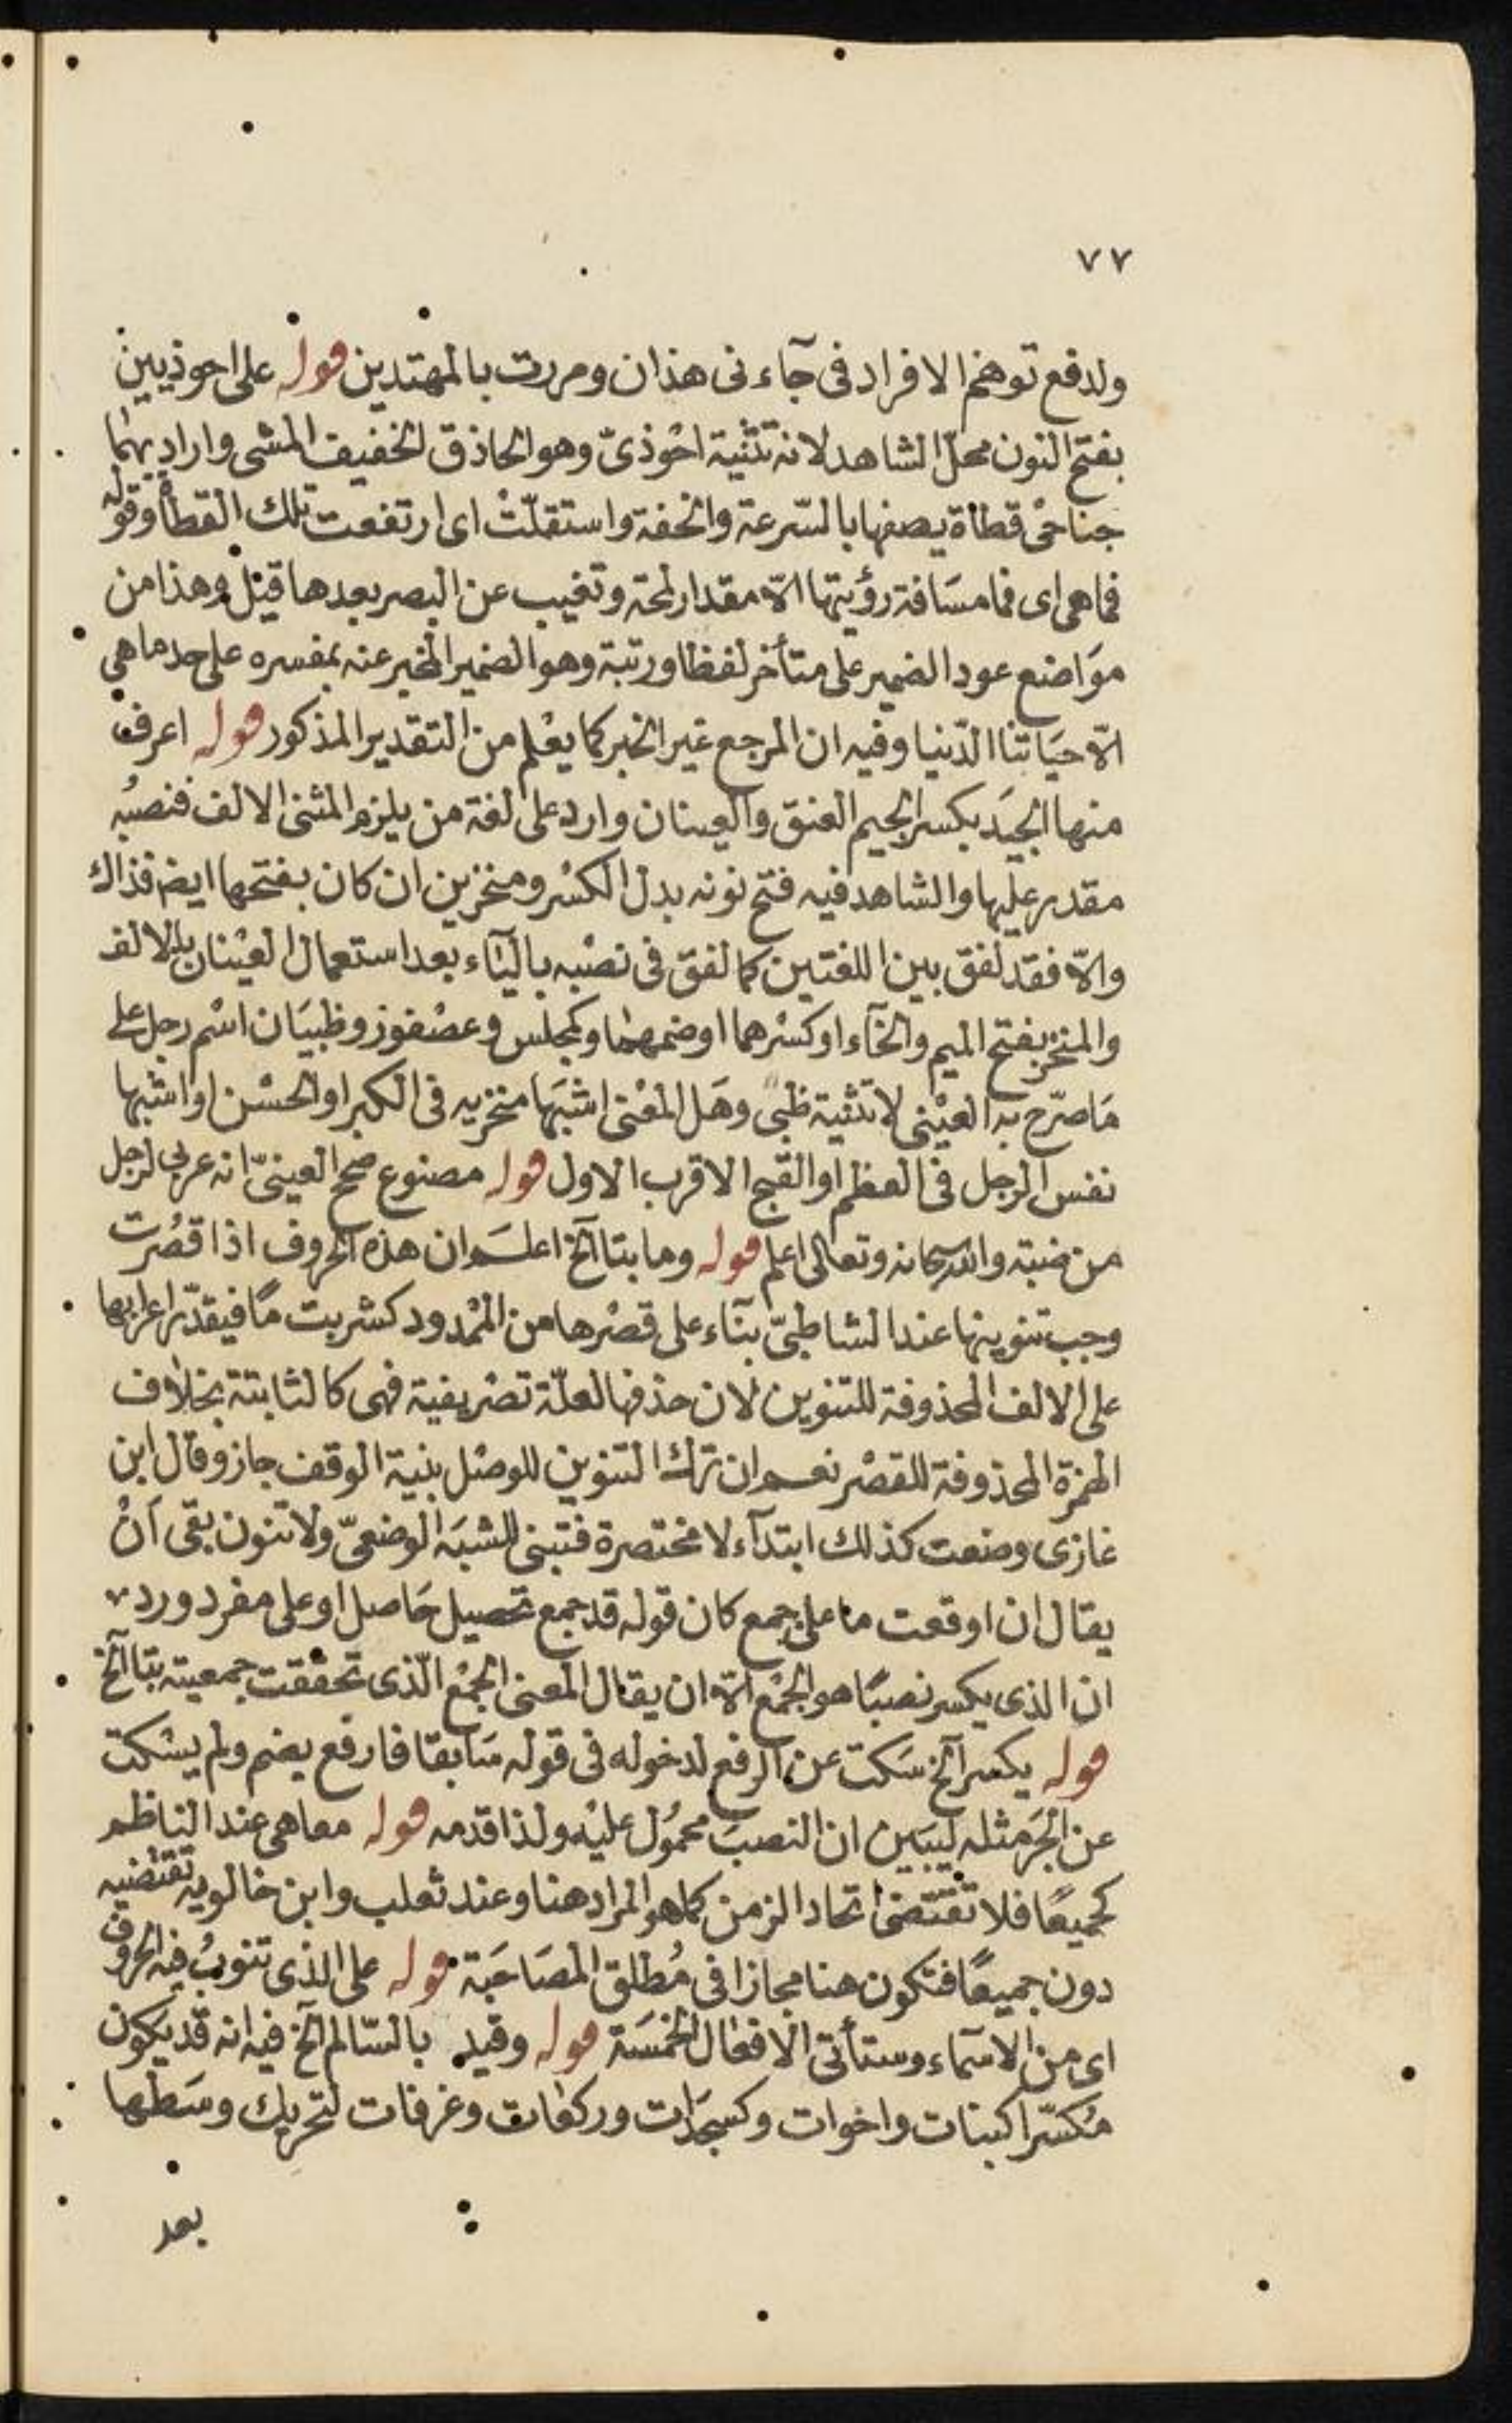 ٧٧
ولدفع توهم الافراد فى جآء نى هذان ومررت بالمهتدين قوله على احوذيين
بفتح النون محلّ الشاهد لانه تثنية احْوذىّ وهو الحاذق الخفيف المشى واراد بهما
جناحىْ قطاة يصفها بالسّرعة والخفة واستقلّتْ اى ارتفعت تلك القطاة وقوله
فماهى اى فما مسَافة رؤيتها الاّ مقدار لمحة وتغيب عن البصر بعدها قيل وهذا من
موَاضع عود الضمير على متأخر لفظا ورتبة وهو الضمير المخبر عنه بمفسره على حد ماهي
الاّ حيَاتنا الدّنيا وفيه ان المرجع غير الخبر كما يعْلم من التقدير المذكور قوله اعرف
منها الجيَد بكسر الجيم العنق والعينان وارد على لغة من يلزم المثنى الالف فنصبُه
مقدر عليها والشاهد فيه فتح نونه بدل الكسْر ومنخرين ان كان بفتحها ايضا فذاك
والاّ فقد لفق بين اللغتين كما لفق فى نصْبه باليَآء بعد استعمال العيْنان بالالف
والمنخر بفتح الميم والخآء او كسْرهما او ضمهما وكمجلس وعصْفور وظبيَان اسْم رجل على
مَا صرّح به العيْنى لا تثنية ظبى وهَل المعْنى اشبَها منخريه فى الكبر او الحسْن او اشبها
نفس الرجل فى العظم او القبح الاقرب الاول قوله مصنوع صحح العينىّ انه عربى لرجل
من ضبة والله سبحانه وتعالى اعلم قوله وما بتا آلخ اعلَم ان هذه الحروف اذا قصُرت
وجب تنوينها عند الشاطبىّ بنآء على قصْرها من الممْدود كشربت مًا فيقدّر اعرابها
على الالف المحذوفة للتنوين لان حذفها لعلّة تصْريفية فهى كالثابتة بخلاف
الهمزة المحذوفة للقصْر نعم ان ترك التنوين للوصْل بنية الوقف جاز وقال ابن
غازى وضعت كذلك ابتدآء لا مختصرة فتبنى للشبَه الوضعىّ ولا تنون بقى اَنْ
يقال ان اوقعت ما على جمع كان قوله قد جمع تحصيل حَاصل او على مفرد ورد
ان الذى يكسر نصبًا هو الجمْع الاّ ان يقال المعنى الجمْع الّذى تحققت جمعيته بتا آلخ
قوله يكسر آلخ سَكت عن الرفع لدخوله فى قوله سَابقا فارفع بضم ولم يسْكت
عن الجَر مثله ليبَين ان النصبَ محمُول عليْه ولذا قدمه قوله معاهى عند الناظم
كجميعًا فلا تقتضى اتحاد الزمن كما هو المراد هنا وعند ثعلب وابن خالويه تقتضيه
دون جميعًا فتكون هنا مجازا فى مُطلق المصَاحَبَة قوله على الذى تنوبُ فيه الحروف
اى من الاسماء وستأتى الافعَال الخمسَة قوله وقيد بالسّالم آلخ فيه انه قد يكون
مُكسّرا كبنات واخوات وكسجدَات وركعات وغرفات لتحريك وسَطها
بعد